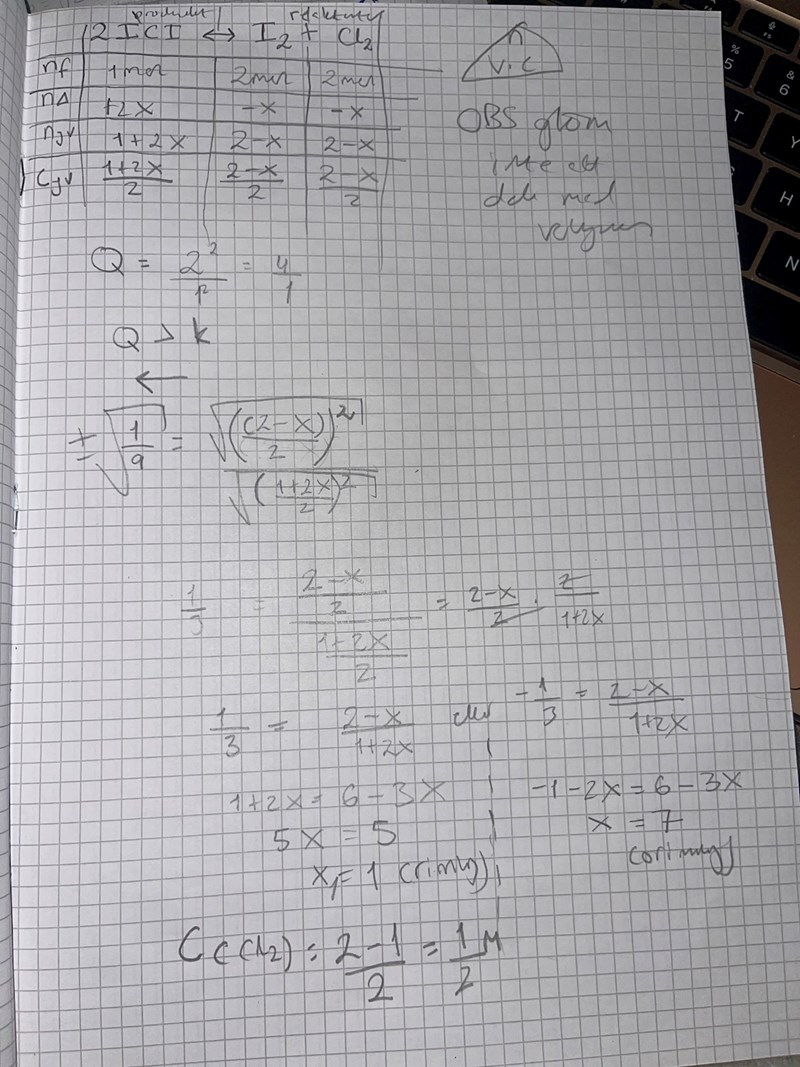 produkt reaktant
2 ICl ↔ I₂ + Cl₂
nf 1mol 2mol 2mol
nΔ +2x -x -x
njv 1+2x 2-x 2-x
Cjv (1+2x)/2 (2-x)/2 (2-x)/2
n
V.C
OBS glöm
inte att
dela med
volymen
Q = 2²/1² = 4/1
Q > k
←
±√(1/9) = √(((2-x)/2)²) / √(((1+2x)/2)²)
1/3 = ((2-x)/2) / ((1+2x)/2) = (2-x)/2 · 2/(1+2x)
1/3 = (2-x)/(1+2x) eller -1/3 = (2-x)/(1+2x)
1+2x = 6-3x -1-2x = 6-3x
5x = 5 x = 7
x₁ = 1 (rimlig) (orimlig)
C(Cl₂) = (2-1)/2 = 1/2 M
%
5
&
6
T
Y
H
N